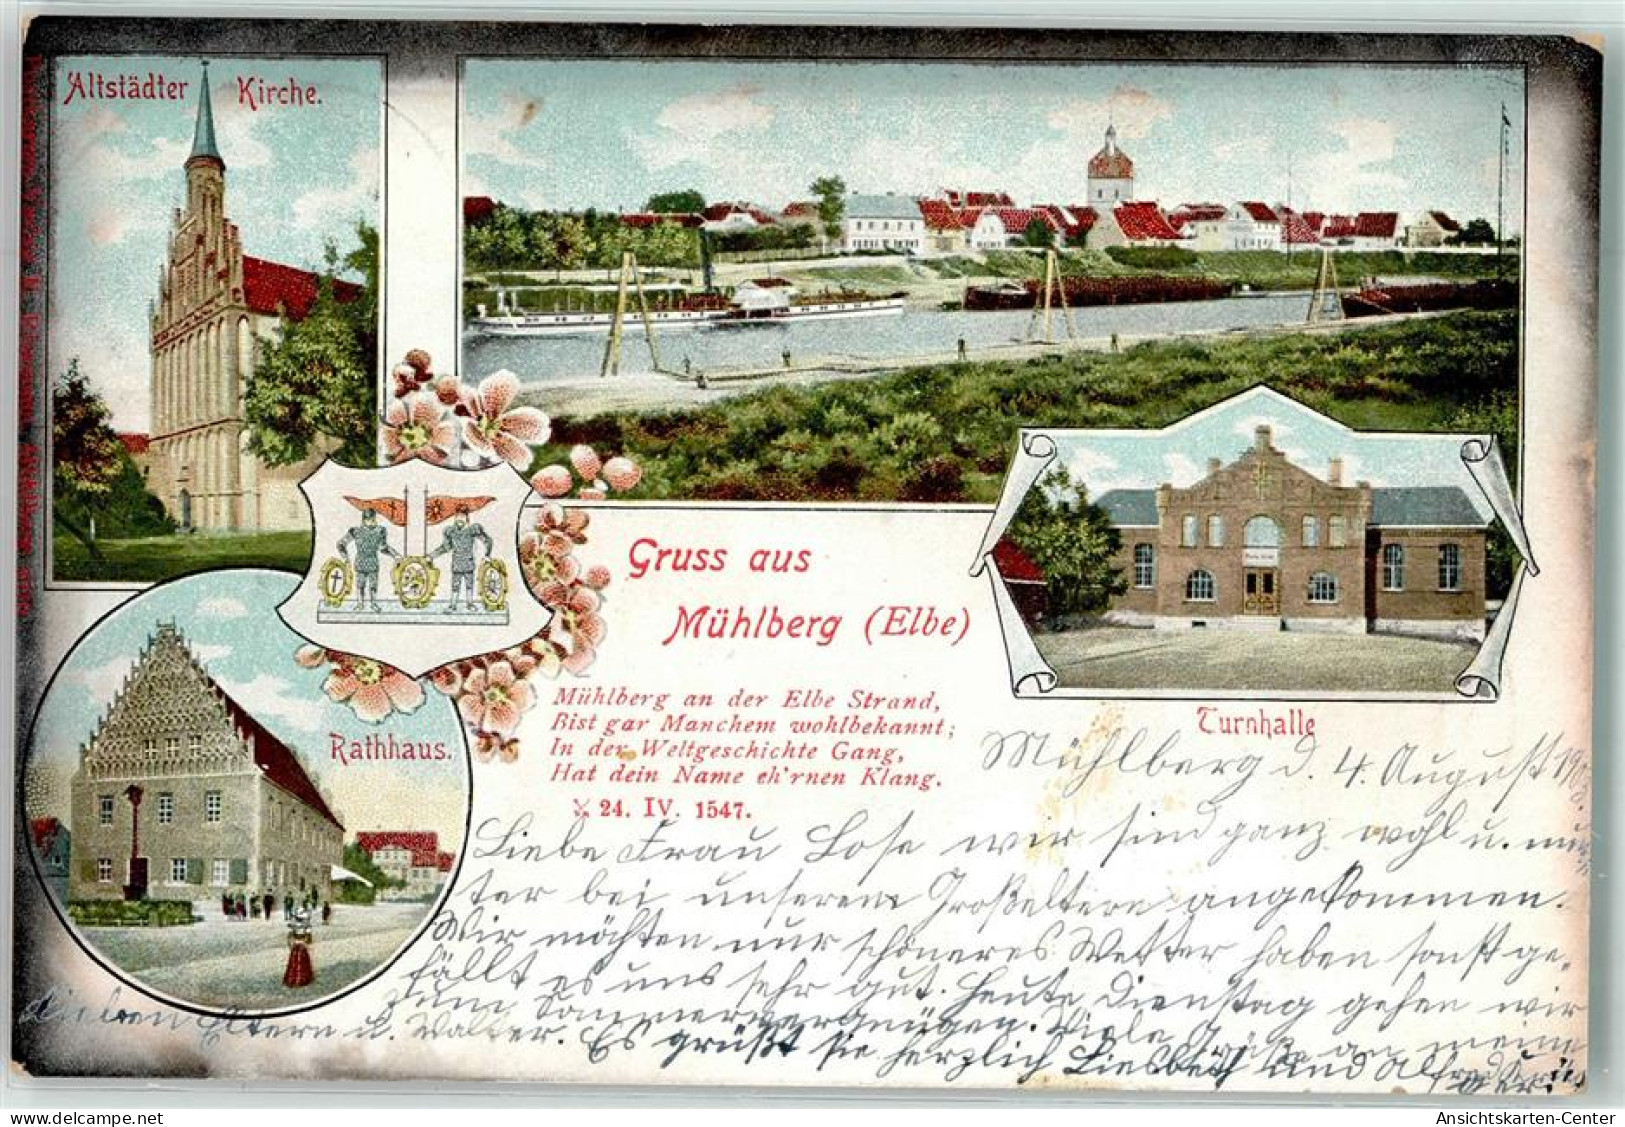 Altstädter Kirche.
Gruss aus
Mühlberg (Elbe)
Turnhalle
Rathhaus.
Mühlberg an der Elbe Strand,
Bist gar Manchem wohlbekannt;
In der Weltgeschichte Gang,
Hat dein Name eh'rnen Klang.
24. IV. 1547.
Mühlberg d. 4. August
Liebe Frau Lose wir sind ganz wohl u. mun
ter bei unseren Großeltern angekommen.
Wir möchten nur schöneres Wetter haben sonst ge-
fällt es uns sehr gut. Heute Dienstag gehen wir
zum Sommervergnügen. Viele Grüße an meine
lieben Eltern u. Walter. Es grüßt sie herzlich Liesbeth und Alfred
Ansichtskarten-Center